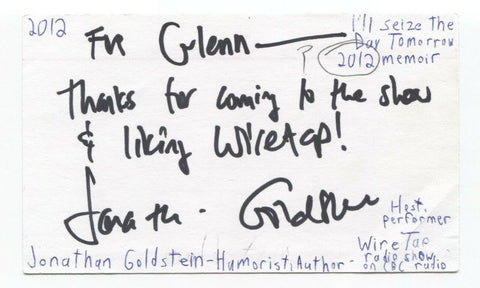 2012
For Glenn
I'll seize the
Day Tomorrow
2012 memoir
?
Thanks for coming to the show
& liking Wiretap!
Jonathan Goldstein
Host,
performer
WireTap
radio show
on CBC radio
Jonathan Goldstein-Humorist, Author-